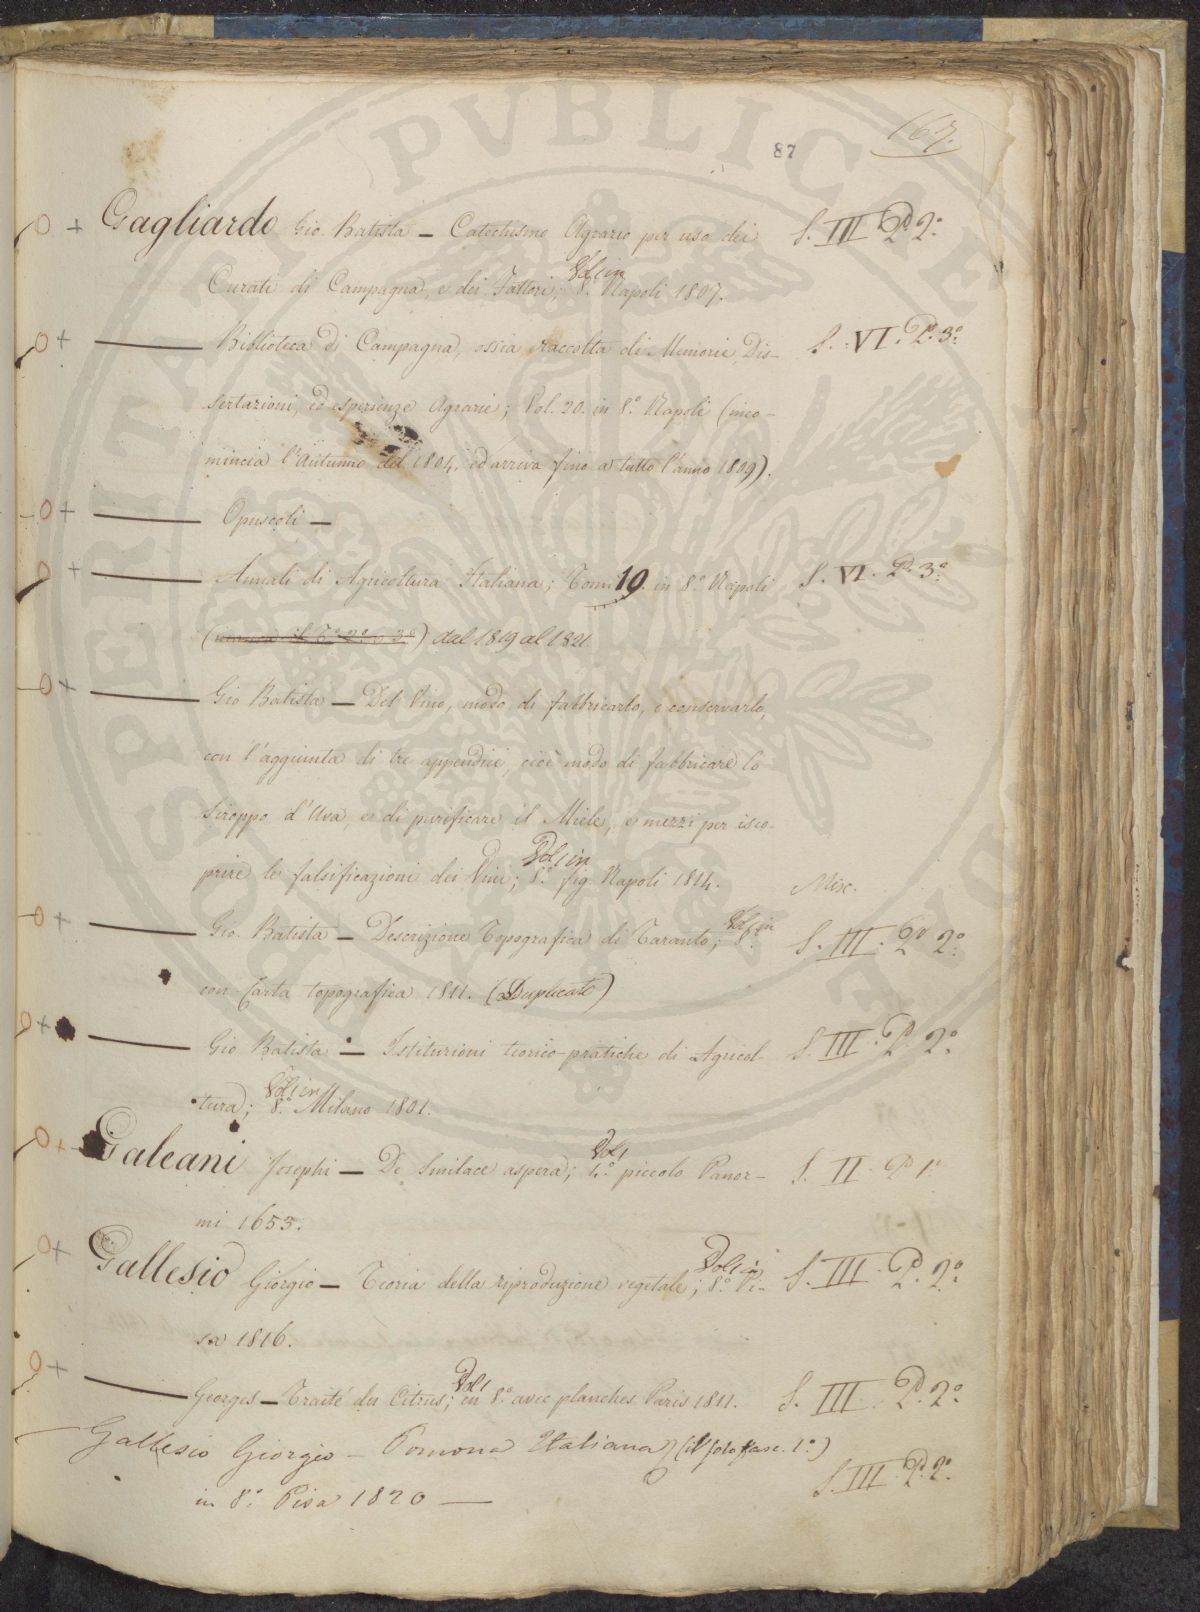 167.
87
Gagliardo Gio. Batista — Catechismo Agrario per uso dei S. III P. 2.°
Curati di Campagna, e dei Fattori; Vol. 1 in 8.° Napoli 1807.
——— Biblioteca di Campagna, ossia raccolta di Memorie, Dis- S. VI. P. 3.°
sertazioni, ed esperienze Agrarie; Vol. 20. in 8.° Napoli (inco-
mincia l'Autunno del 1804, ed arriva fino a tutto l'anno 1809).
——— Opuscoli —
——— Annali di Agricoltura Italiana; Tomi 10. in 8.° Napoli S. VI. P. 3.°
(manca il T.° 2.° e 3.°) dal 1819 al 1821.
——— Gio Batista — Del Vino, modo di fabbricarlo, e conservarlo,
con l'aggiunta di tre appendici, cioè modo di fabbricare lo
Siroppo d'Uva, e di purificare il Miele, e mezzi per isco-
prire le falsificazioni dei Vini; Vol. 1 in 8.° fig. Napoli 1814. Misc.
——— Gio. Batista — Descrizione Topografica di Taranto; Vol. 1 in 8.° S. III. P. 2.°
con Carta topografica 1811. (Duplicato)
——— Gio Batista — Istituzioni teorico-pratiche di Agricol- S. III. P. 2.°
tura; Vol. 1 in 8.° Milano 1801.
Galeani Josephi — De Smilace aspera; Vol. 1 4.° piccolo Panor- S. II. P. 1.°
mi 1653.
Gallesio Giorgio — Teoria della riproduzione vegetale; Vol. 1 in 8.° Pi- S. III. P. 2.°
sa 1816.
——— Georges — Traité du Citrus; Vol. 1 en 8.° avec planches Paris 1811. S. III. P. 2.°
Gallesio Giorgio — Pomona Italiana (il solo fasc. 1.°)
in 8.° Pisa 1820 — S. III. P. 2.°